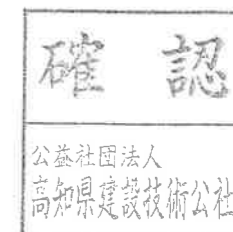 確認
公益社団法人
高知県建設技術公社